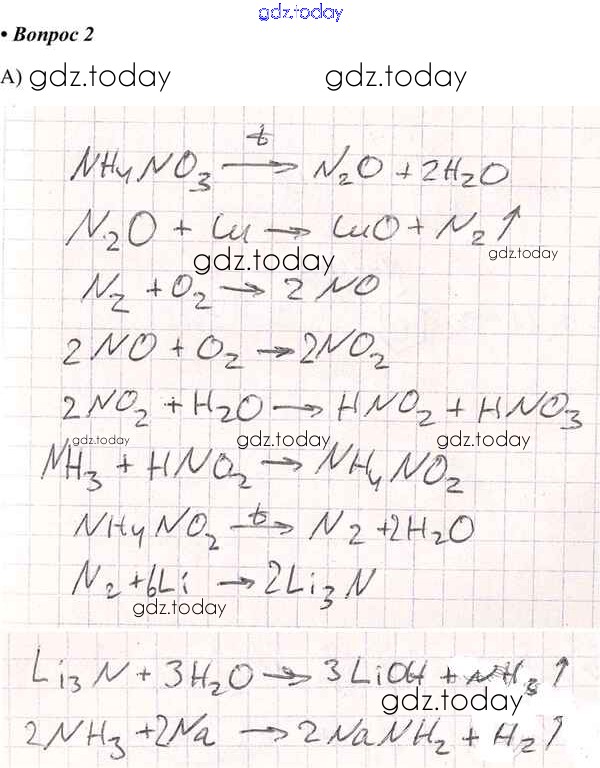 gdz.today
• Вопрос 2
А) gdz.today gdz.today
NH4NO3 —t→ N2O + 2H2O
N2O + Cu → CuO + N2↑
gdz.today gdz.today
N2 + O2 → 2NO
2NO + O2 → 2NO2
2NO2 + H2O → HNO2 + HNO3
gdz.today gdz.today gdz.today
NH3 + HNO2 → NH4NO2
NH4NO2 —t→ N2 + 2H2O
N2 + 6Li → 2Li3N
gdz.today
Li3N + 3H2O → 3LiOH + NH3↑
gdz.today
2NH3 + 2Na → 2NaNH2 + H2↑